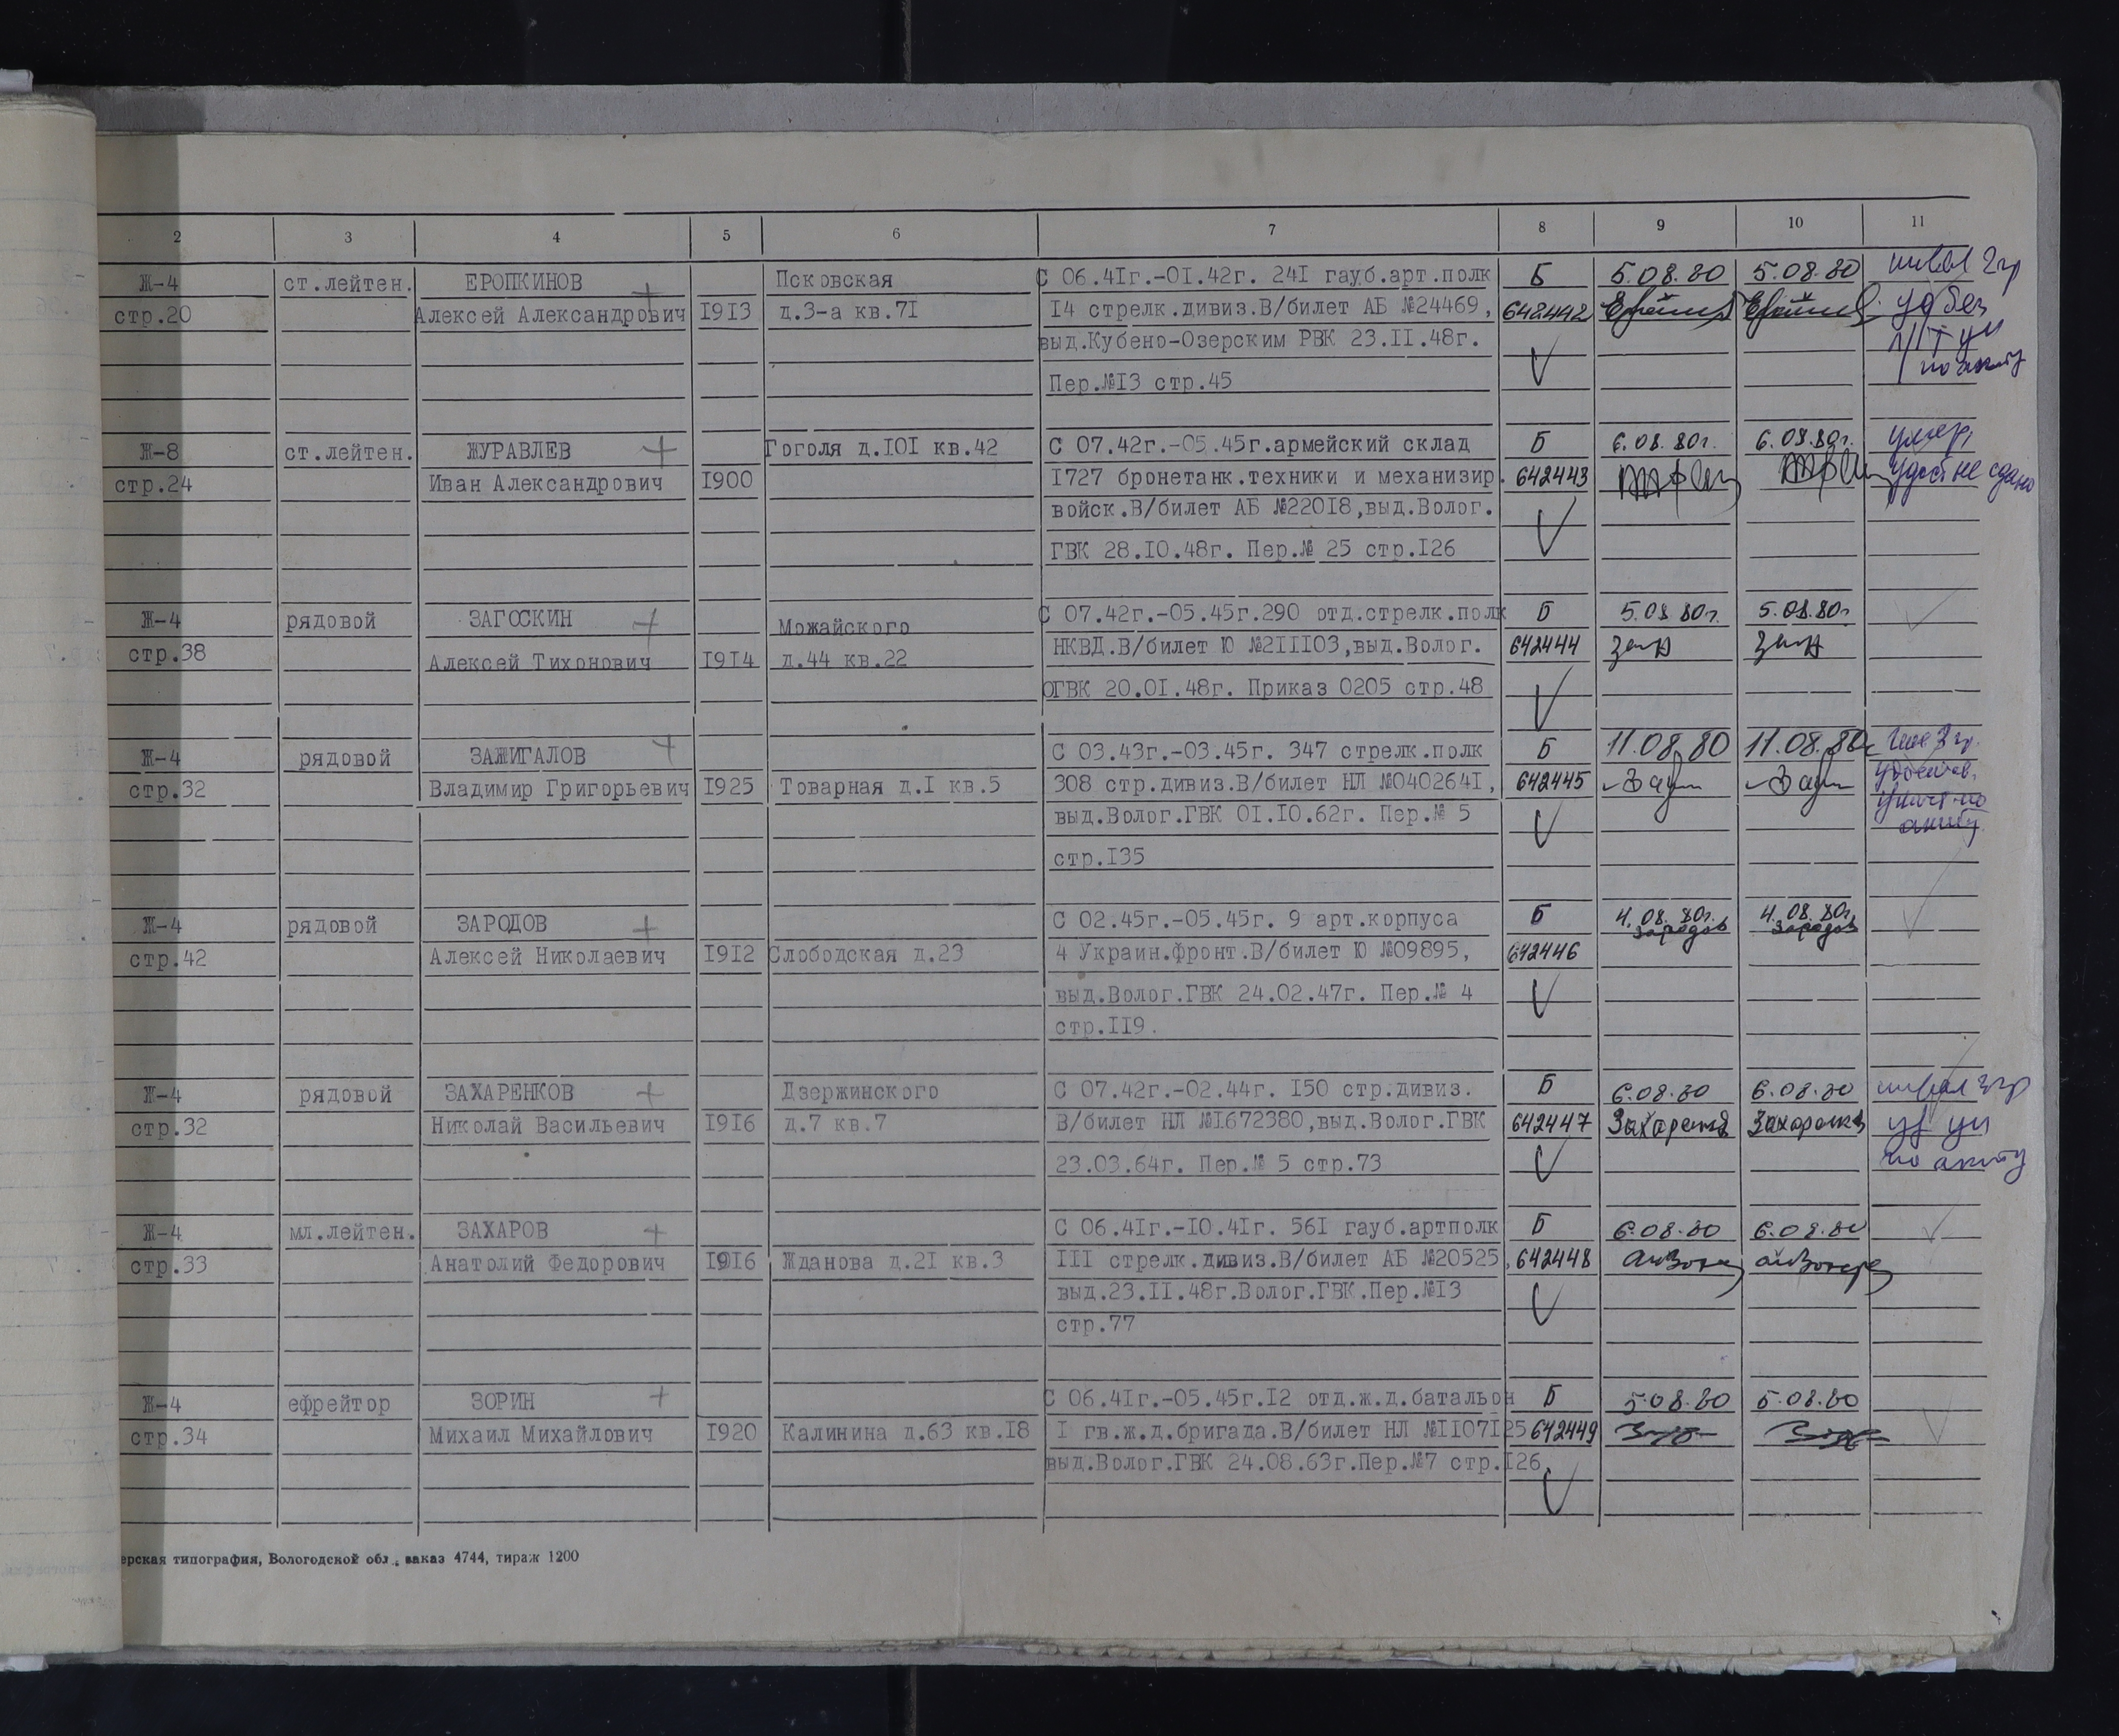 2 3 4 5 6 7 8 9 10 11
Ж-4 ст.лейтен. ЕРОПКИНОВ Псковская С 06.4Iг.-0I.42г. 24I гауб.арт.полк Б 5.08.80 5.08.80 инвал 2 гр
стр.20 Алексей Александрович I9I3 д.3-а кв.7I I4 стрелк.дивиз.В/билет АБ №24469, 642442
выд.Кубено-Озерским РВК 23.II.48г.
Пер.№I3 стр.45 по акту
Ж-8 ст.лейтен. ЖУРАВЛЕВ Гоголя д.I0I кв.42 С 07.42г.-05.45г.армейский склад Б 6.08.80г. 6.08.80г. умер,
стр.24 Иван Александрович I900 I727 бронетанк.техники и механизир. 642443 удост не сдано
войск.В/билет АБ №220I8,выд.Волог.
ГВК 28.I0.48г. Пер.№ 25 стр.I26
Ж-4 рядовой ЗАГОСКИН Можайского С 07.42г.-05.45г.290 отд.стрелк.полк Б 5.08.80г. 5.08.80г.
стр.38 Алексей Тихонович I9I4 д.44 кв.22 НКВД.В/билет Ю №2III03,выд.Волог. 642444
ОГВК 20.0I.48г. Приказ 0205 стр.48
Ж-4 рядовой ЗАЖИГАЛОВ С 03.43г.-03.45г. 347 стрелк.полк Б 11.08.80 11.08.80г
стр.32 Владимир Григорьевич I925 Товарная д.I кв.5 308 стр.дивиз.В/билет НЛ №040264I, 642445
выд.Волог.ГВК 0I.I0.62г. Пер.№ 5
акту
стр.I35
Ж-4 рядовой ЗАРОДОВ С 02.45г.-05.45г. 9 арт.корпуса Б 4.08.80г. 4.08.80г.
Зародов Зародов
стр.42 Алексей Николаевич I9I2 Слободская д.23 4 Украин.фронт.В/билет Ю №09895, 642446
выд.Волог.ГВК 24.02.47г. Пер.№ 4
стр.II9.
Ж-4 рядовой ЗАХАРЕНКОВ Дзержинского С 07.42г.-02.44г. I50 стр.дивиз. Б 6.08.80 6.08.80
стр.32 Николай Васильевич I9I6 д.7 кв.7 В/билет НЛ №I672380,выд.Волог.ГВК 642447
23.03.64г. Пер.№ 5 стр.73 по акту
Ж-4 мл.лейтен. ЗАХАРОВ С 06.4Iг.-I0.4Iг. 56I гауб.артполк Б 6.08.80 6.08.80
стр.33 Анатолий Федорович I9I6 Жданова д.2I кв.3 III стрелк.дивиз.В/билет АБ №20525, 642448
выд.23.II.48г.Волог.ГВК.Пер.№I3
стр.77
Ж-4 ефрейтор ЗОРИН С 06.4Iг.-05.45г.I2 отд.ж.д.батальон Б 5.08.80 5.08.80
стр.34 Михаил Михайлович I920 Калинина д.63 кв.I8 I гв.ж.д.бригада.В/билет НЛ №II07I25 642449
выд.Волог.ГВК 24.08.63г.Пер.№7 стр.I26,
ерская типография, Вологодской обл., заказ 4744, тираж 1200